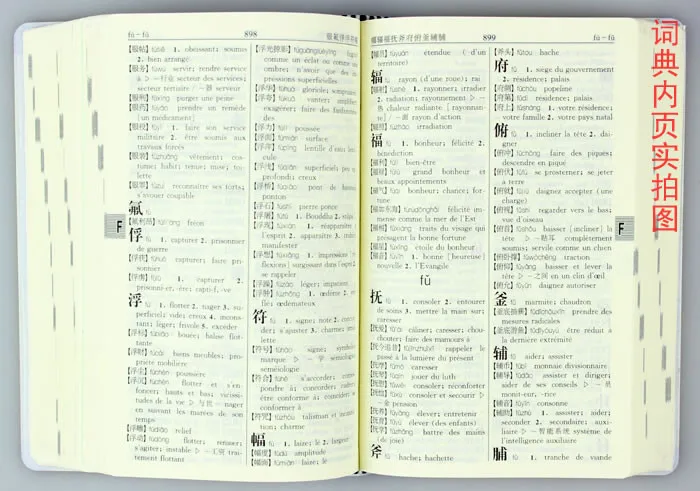 fú – fú
898
【服帖】fútiē 1. obéissant; soumis
2. bien arrangé
【服务】fúwù servir; rendre service
à ▷ ~行业 secteur des services;
secteur tertiaire / ~器 serveur
【服刑】fúxíng purger une peine
【服药】fúyào prendre un remède
[un médicament]
【服役】fúyì 1. faire son service
militaire 2. être soumis aux
travaux forcés
【服装】fúzhuāng vêtement; cos-
tume; habit; tenue; mise; toi-
lette
【服罪】fúzuì reconnaître ses torts;
s'avouer coupable
氟 fú
【氟利昂】fúlì'áng fréon
俘 fú 1. capturer 2. prisonnier
de guerre
【俘获】fúhuò capturer; faire pri-
sonnier
【俘虏】fúlǔ 1. capturer 2.
浮 fú 1. flotter 2. nager 3. su-
perficiel; vide; creux 4. mons-
tant; léger; frivole 5. excéder
【浮标】fúbiāo bouée; balise flot-
tante
【浮财】fúcái biens meubles; pro-
priété mobilière
【浮尘】fúchén poussière
【浮沉】fúchén flotter et s'en-
foncer; hauts et bas; vicissi-
tudes de la vie ▷ 与世~ nager
en suivant les marées de son
temps
【浮雕】fúdiāo relief
【浮动】fúdòng flotter; remuer;
s'agiter; instable ▷ ~工资 trai-
tement flottant
【浮光掠影】fúguānglüèyǐng fugitif
comme un éclat ou comme une
ombre; n'avoir que des im-
pressions superficielles
【浮夸】fúkuā vanter; amplifier;
exagérer; faire des fanfaron-
nades
【浮力】fúlì poussée
【浮面】fúmiàn surface
【浮萍】fúpíng lentille d'eau; len-
ticule
【浮浅】fúqiǎn superficiel; peu
profond; creux
【浮桥】fúqiáo pont de bateaux;
ponton
【浮石】fúshí pierre ponce
【浮屠】fútú 1. Bouddha 2. stupa
【浮现】fúxiàn 1. réapparaître à
l'esprit 2. apparaître 3. se
manifester
【浮躁】fúzào léger; impatient
【浮肿】fúzhǒng œdème
符 fú 1. signe; note 2. concor-
der; s'ajuster 3. charme; amu-
lette
【符号】fúhào signe; symbole;
marque ▷ ~学 sémiologie;
séméiologie
【符合】fúhé s'accorder; corres-
pondre à; concorder; cadrer;
être conforme à; coïncider; se
conformer à
【符咒】fúzhòu talisman et incanta-
tion; charme
幅 fú 1. laize; lé 2. largeur
【幅度】fúdù amplitude
【幅面】fúmiàn laize; lé
F
899
fú – fǔ
【幅员】fúyuán étendue (d'un
territoire)
辐 fú rayon (d'une roue); rai
【辐射】fúshè 1. rayonner; irradier
2. radiation; rayonnement ▷ ~
热 chaleur radiante [rayonnan-
te] / ~面 rayon d'action
【辐照】fúzhào irradiation
福 fú 1. bonheur; félicité 2.
bénédiction
【福利】fúlì bien-être
【福气】fúqi bonheur; chance; for-
tune
【福如东海】fúrúdōnghǎi félicité im-
mense comme la mer de l'Est
【福相】fúxiàng traits du visage qui
présagent la bonne fortune
【福星】fúxīng étoile du bonheur
【福音】fúyīn 1. bonne [heureuse]
nouvelle 2. l'Evangile
fǔ
抚 fǔ 1. consoler 2. entourer
de soins 3. mettre la main sur;
caresser
【抚爱】fǔ'ài câliner; caresser; chou-
chouter; faire des mamours à
【抚今追昔】fǔjīnzhuīxī rappeler le
passé à la lumière du présent
【抚摩】fǔmó caresser
【抚琴】fǔqín jouer du luth
【抚慰】fǔwèi consoler; réconforter
【抚恤】fǔxù consoler et secourir ▷
~金 pension
【抚养】fǔyǎng élever; entretenir
【抚育】fǔyù élever (des enfants)
【抚掌】fǔzhǎng battre des mains
(de joie)
斧 fǔ hache; hachette
【斧头】fǔtou hache
府 fǔ 1. siège du gouvernement
2. résidence; palais
【府绸】fǔchóu popeline
【府邸】fǔdǐ résidence; palais
【府上】fǔshàng 1. votre résidence;
votre famille 2. votre pays natal
俯 fǔ 1. incliner la tête 2. dai-
gner
【俯冲】fǔchōng faire des piqués;
descendre en piqué
【俯伏】fǔfú se prosterner; se jeter
à terre
【俯就】fǔjiù daignez accepter (une
charge)
【俯视】fǔshì regarder vers le bas;
vue d'oiseau
【俯首】fǔshǒu baisser [incliner] la
tête ▷ ~帖耳 complètement
soumis; servile comme un chien
【俯仰】fǔyǎng baisser et lever la
tête ▷ ~之间 en un clin d'œil
【俯允】fǔyǔn daignez autoriser
釜 fǔ marmite; chaudron
【釜底抽薪】fǔdǐchōuxīn prendre des
mesures radicales
【釜底游鱼】fǔdǐyóuyú être réduit à
la dernière extrémité
辅 fǔ aider; assister
【辅币】fǔbì monnaie divisionnaire
【辅导】fǔdǎo assister et diriger;
aider de ses conseils ▷ ~员
【辅音】fǔyīn consonne
【辅助】fǔzhù 1. assister; aider;
seconder 2. secondaire; auxi-
liaire ▷ ~智能系统 système de
l'intelligence auxiliaire
脯 fǔ 1. tranche de viande
F
词典内页实拍图